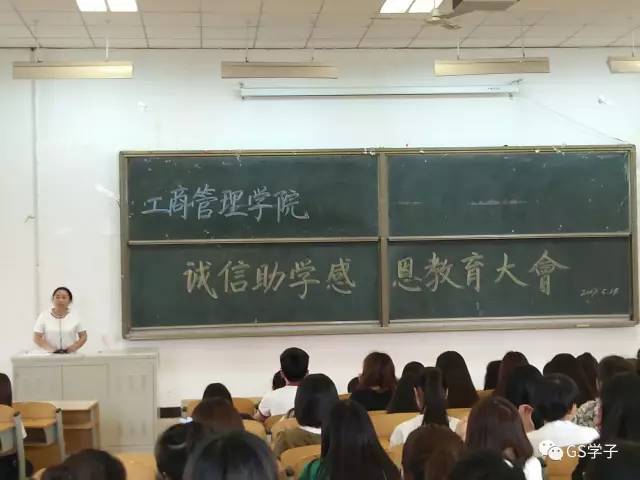 工商管理学院
诚信助学感恩教育大會
GS学子